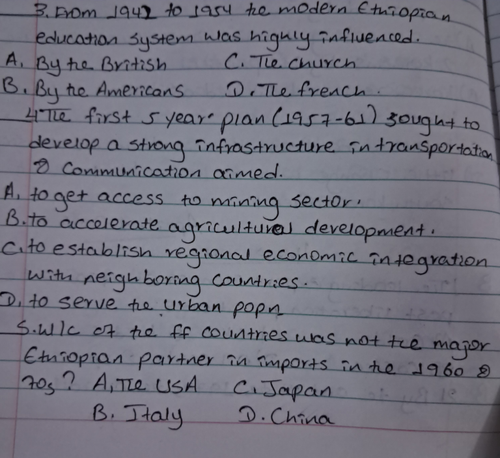 3. From 1942 to 1954 the modern Ethiopian
education system was highly influenced.
A. By the British C. The church
B. By the Americans D. The french.
4. The first 5 year plan (1957-61) sought to
develop a strong infrastructure in transportation
& communication aimed.
A. to get access to mining sector.
B. to accelerate agricultural development.
C. to establish regional economic integration
with neighboring countries.
D. to serve the urban popn
5. W/c of the ff countries was not the major
Ethiopian partner in imports in the 1960 &
70s? A, The USA C. Japan
B. Italy D. China